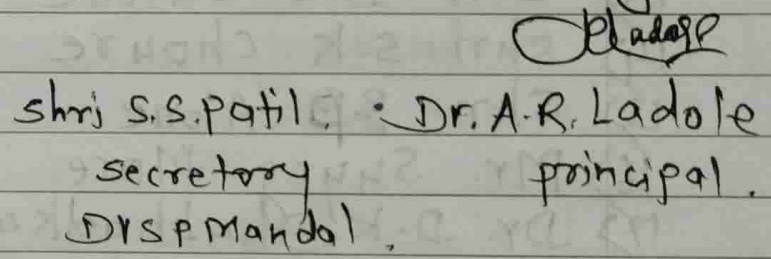 Shri S.S.Patil. Dr. A.R. Ladole
Secretory principal.
DVSP Mandal.